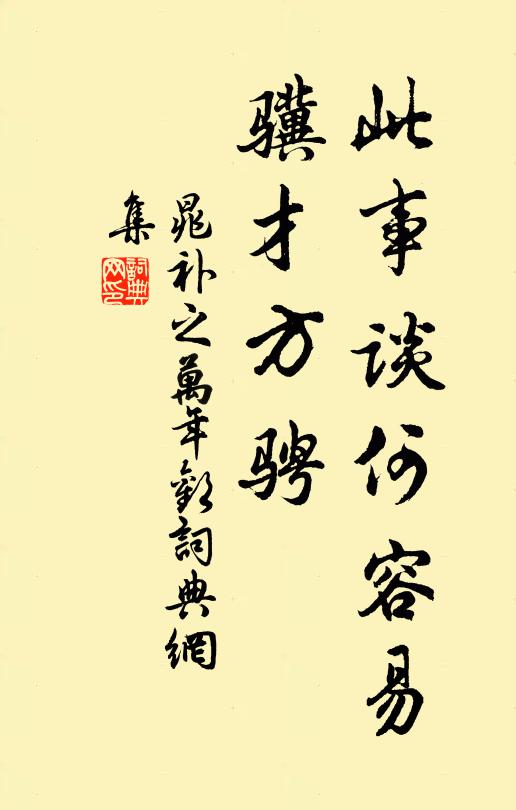 此事谈何容易
骥才方骋
晁补之萬年歡詞典網
集
詞典
网印